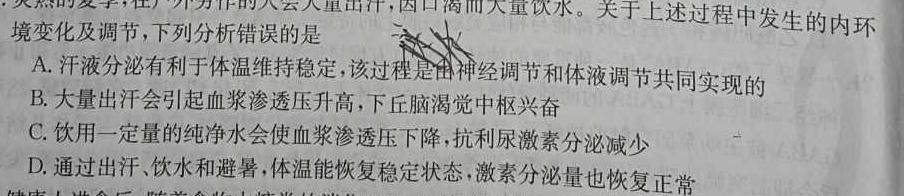 炎热的夏季,在户外劳作的人会大量出汗,因口渴而大量饮水。关于上述过程中发生的内环
境变化及调节,下列分析错误的是
A. 汗液分泌有利于体温维持稳定,该过程是由神经调节和体液调节共同实现的
B. 大量出汗会引起血浆渗透压升高,下丘脑渴觉中枢兴奋
C. 饮用一定量的纯净水会使血浆渗透压下降,抗利尿激素分泌减少
D. 通过出汗、饮水和避暑,体温能恢复稳定状态,激素分泌量也恢复正常